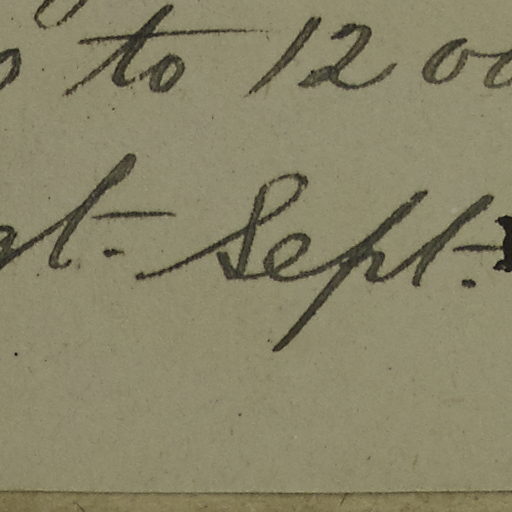 to 12 00
at. Sept.